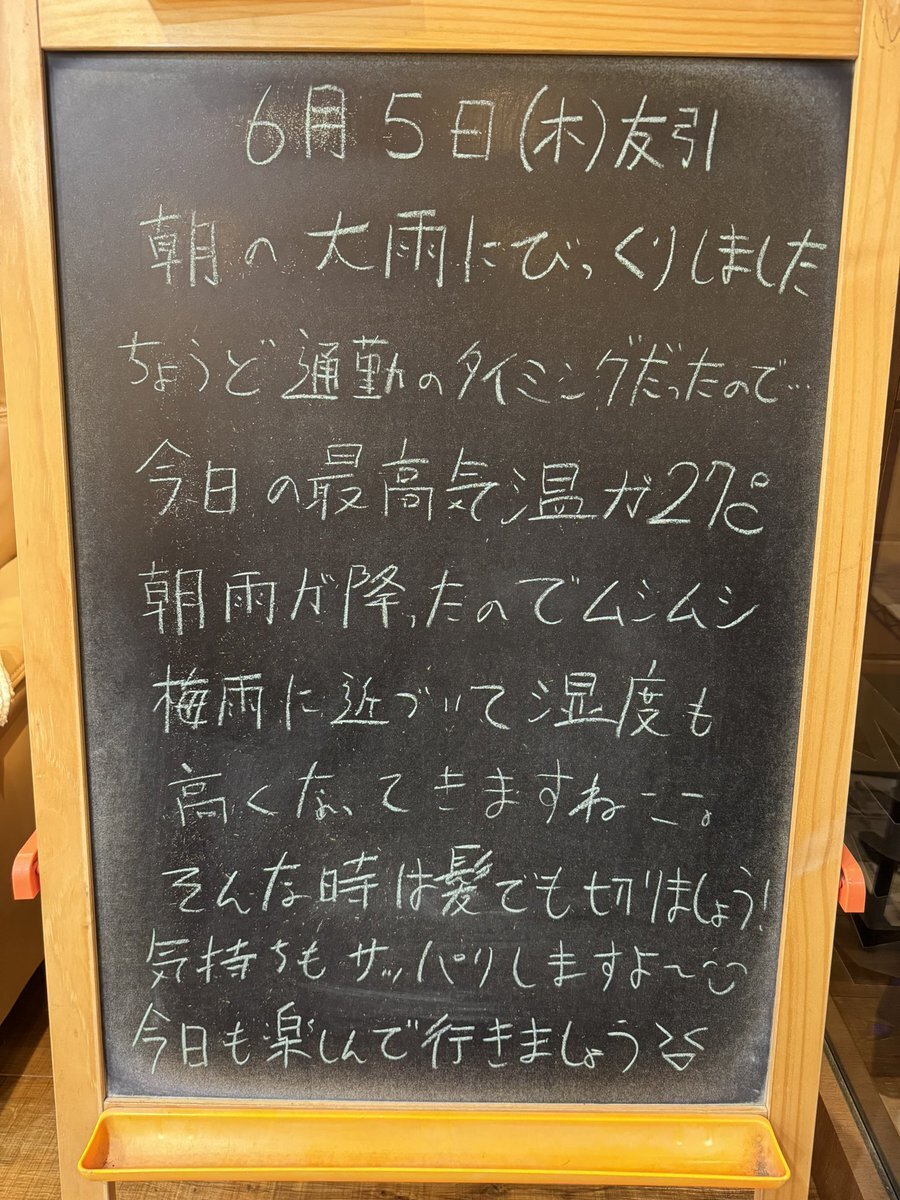 6月5日(木)友引
朝の大雨にびっくりしました
ちょうど通勤のタイミングだったので…
今日の最高気温が27℃
朝雨が降ったのでムシムシ
梅雨に近づいて湿度も
高くなってきますね
そんな時は髪でも切りましょう!
気持ちもサッパリしますよ〜
今日も楽しんで行きましょう